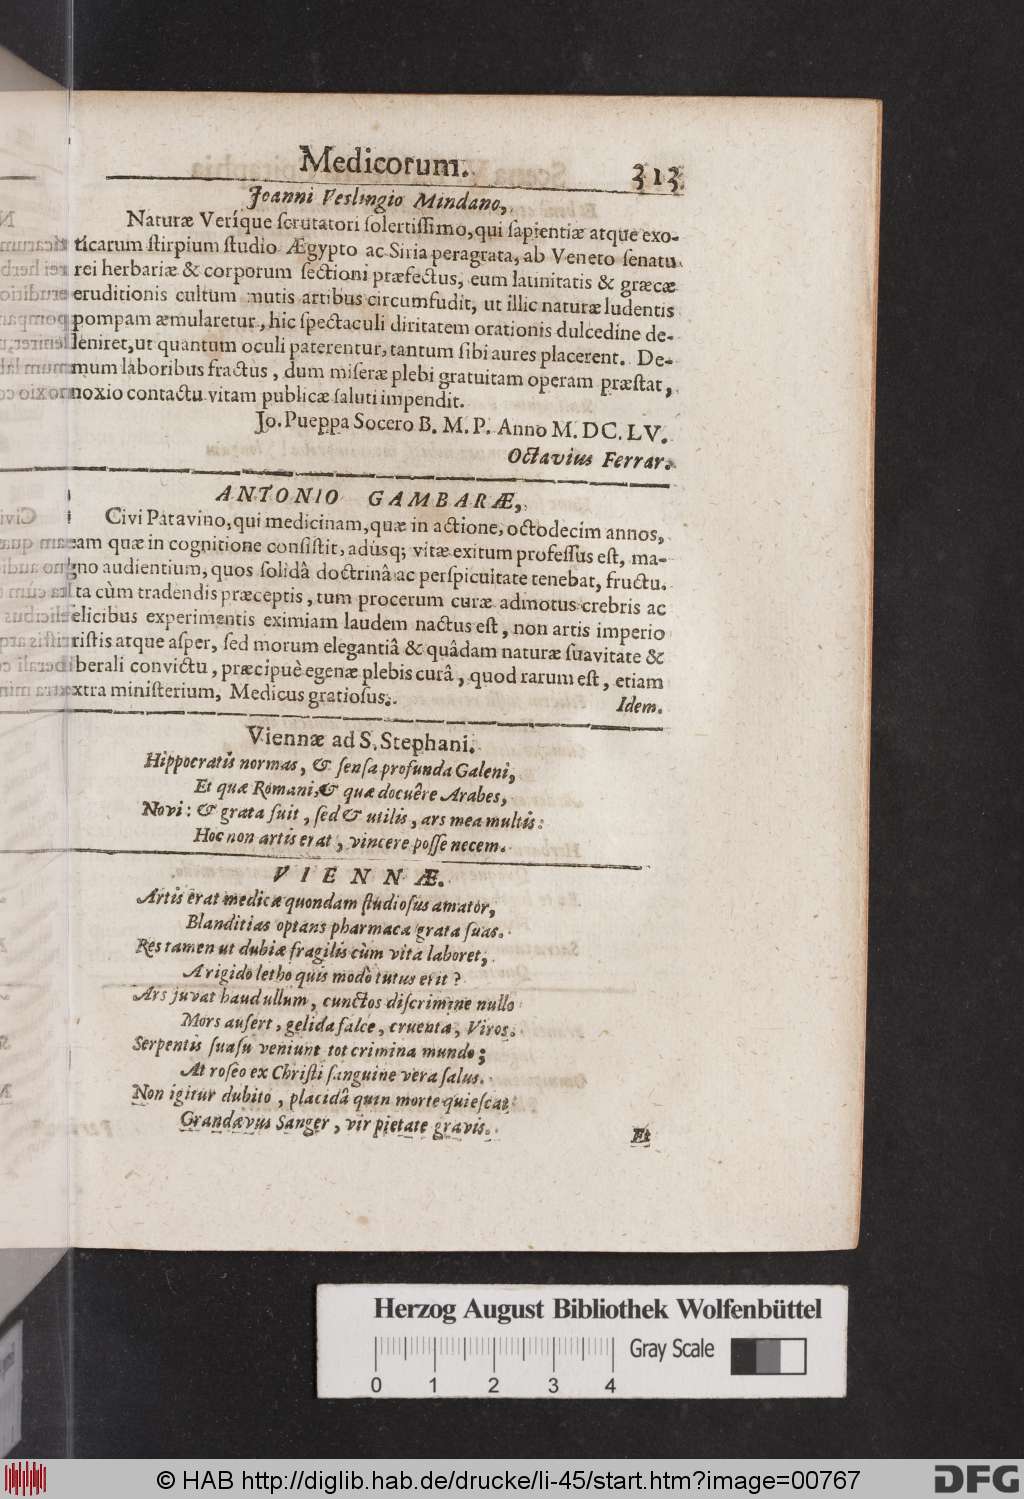 Medicorum. 313
Joanni Veslingio Mindano,
Naturæ Veríque scrutatori solertissimo, qui sapientiæ atque exo-
ticarum stirpium studio Ægypto ac Siria peragrata, ab Veneto senatu
rei herbariæ & corporum sectioni præfectus, eum latinitatis & græcæ
eruditionis cultum mutis artibus circumfudit, ut illic naturæ ludentis
pompam æmularetur, hic spectaculi diritatem orationis dulcedine de-
leniret, ut quantum oculi paterentur, tantum sibi aures placerent. De-
mum laboribus fractus, dum miseræ plebi gratuitam operam præstat,
noxio contactu vitam publicæ saluti impendit.
Jo. Pueppa Socero B. M. P. Anno M. DC. LV.
Octavius Ferrar.
ANTONIO GAMBARÆ,
Civi Patavino, qui medicinam, quæ in actione, octodecim annos,
eam quæ in cognitione consistit, adusq; vitæ exitum professus est, ma-
gno audientium, quos solidâ doctrinâ ac perspicuitate tenebat, fructu.
Ita cùm tradendis præceptis, tum procerum curæ admotus crebris ac
felicibus experimentis eximiam laudem nactus est, non artis imperio
tristis atque asper, sed morum elegantiâ & quâdam naturæ suavitate &
liberali convictu, præcipuè egenæ plebis curâ, quod rarum est, etiam
extra ministerium, Medicus gratiosus.
Idem.
Viennæ ad S. Stephani.
Hippocratis normas, & sensa profunda Galeni,
Et quæ Romani, & quæ docuêre Arabes,
Novi: & grata fuit, sed & utilis, ars mea multis:
Hoc non artis erat, vincere posse necem.
VIENNÆ.
Artis erat medicæ quondam studiosus amator,
Blanditias optans pharmaca grata suas.
Res tamen ut dubiæ fragilis cùm vita laboret,
A rigido letho quis modò tutus erit?
Ars juvat haud ullum, cunctos discrimine nullo
Mors aufert, gelida falce, cruenta, Viros.
Serpentis suasu veniunt tot crimina mundo;
At roseo ex Christi sanguine vera salus.
Non igitur dubito, placidâ quin morte quiescat
Grandævus Sanger, vir pietate gravis.
Et
Herzog August Bibliothek Wolfenbüttel
Gray Scale
0 1 2 3 4
© HAB http://diglib.hab.de/drucke/li-45/start.htm?image=00767
DFG